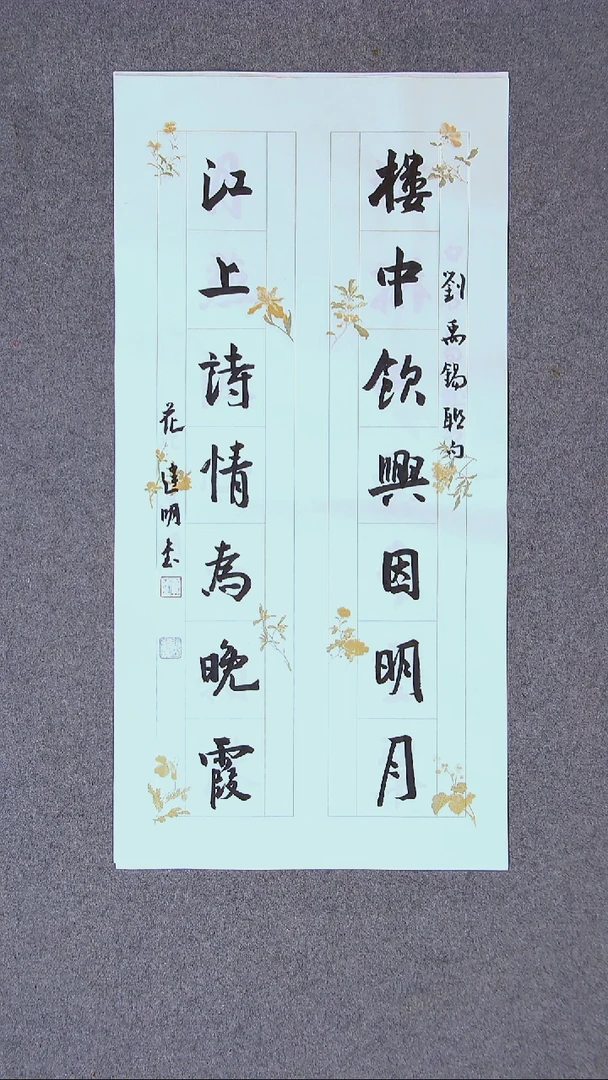 劉禹錫聯句
樓中飲興因明月
江上詩情為晚霞
范建明書